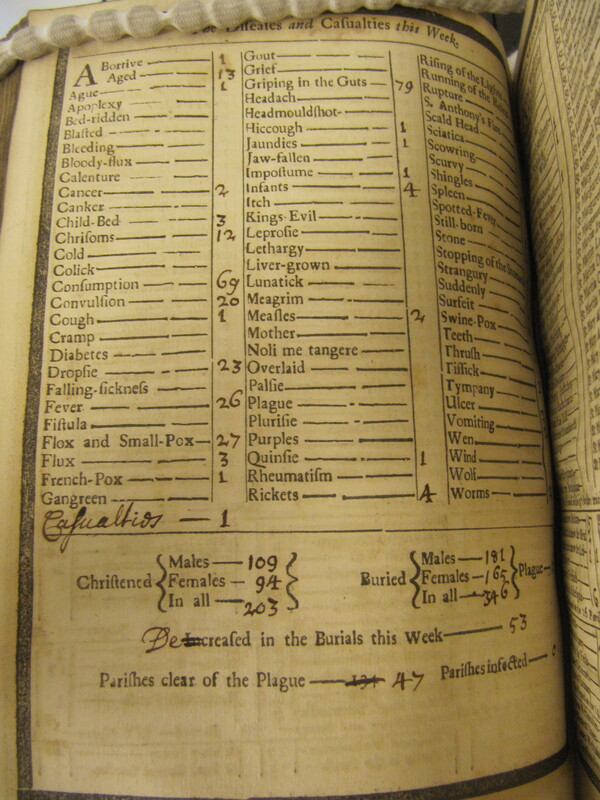 The Diseases and Casualties this Week.
ABortive — 1
Aged — 13
Ague — 1
Apoplexy
Bed-ridden
Blasted
Bleeding
Bloody-flux
Calenture
Cancer — 2
Canker
Child-Bed — 3
Chrisoms — 12
Cold
Colick
Consumption — 69
Convulsion — 20
Cough — 1
Cramp
Diabetes
Dropsie — 23
Falling-sickness
Fever — 26
Fistula
Flox and Small-Pox — 27
Flux — 3
French-Pox — 1
Gangreen
Casualties — 1
Gout
Grief
Griping in the Guts — 79
Headach
Headmouldshot
Hiccough — 1
Jaundies — 1
Jaw-fallen
Impostume — 1
Infants — 4
Itch
Kings-Evil
Leprosie
Lethargy
Liver-grown
Lunatick
Meagrim
Measles — 2
Mother
Noli me tangere
Overlaid
Palsie
Plague
Plurisie
Purples
Quinsie — 1
Rheumatism
Rickets — 4
Rising of the Lights
Running of the
Rupture
S. Anthony's Fire
Scald Head
Sciatica
Scowring
Scurvy
Shingles
Spleen
Spotted-Fever
Still-born
Stone
Stopping of the
Strangury
Suddenly
Surfeit
Swine-Pox
Teeth
Thrush
Tissick
Tympany
Ulcer
Vomiting
Wen
Wind
Wolf
Worms
Christened { Males — 109
Females — 94
In all — 203 }
Buried { Males — 181
Females — 165
In all — 346 } Plague
Decreased in the Burials this Week — 53
Parishes clear of the Plague — 47 Parishes infected — 0